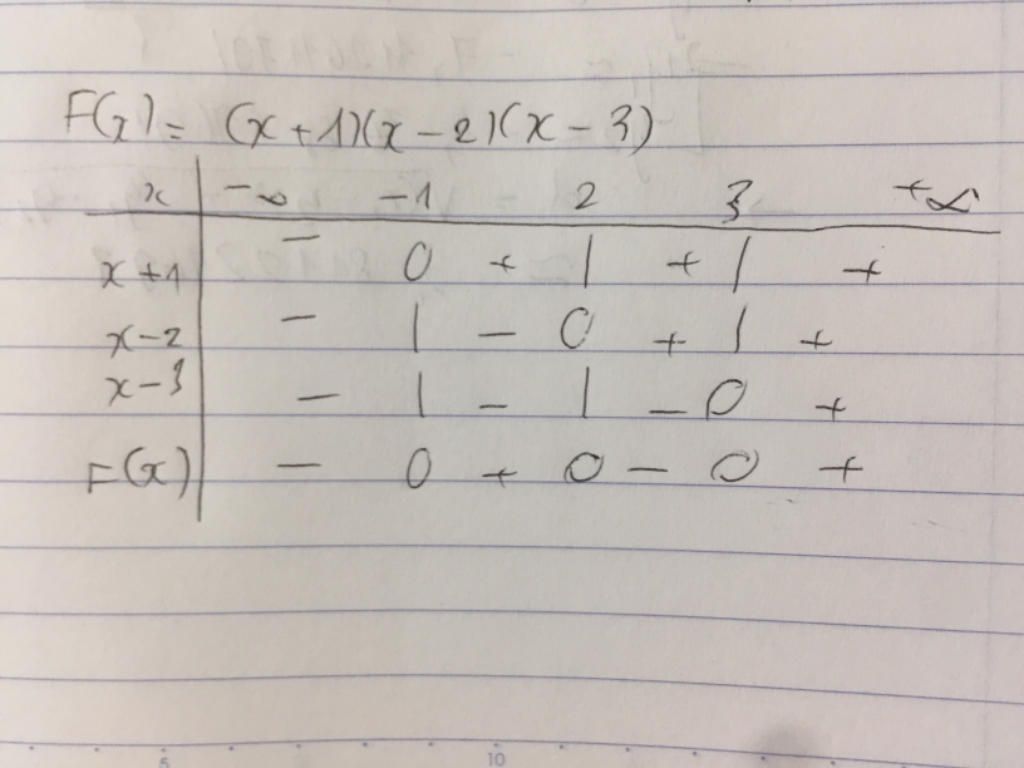 F(x) = (x+1)(x-2)(x-3)
x | -∞ -1 2 3 +∞
x+1 | - 0 + | + | +
x-2 | - | - 0 + | +
x-3 | - | - | - 0 +
F(x) | - 0 + 0 - 0 +
5 10